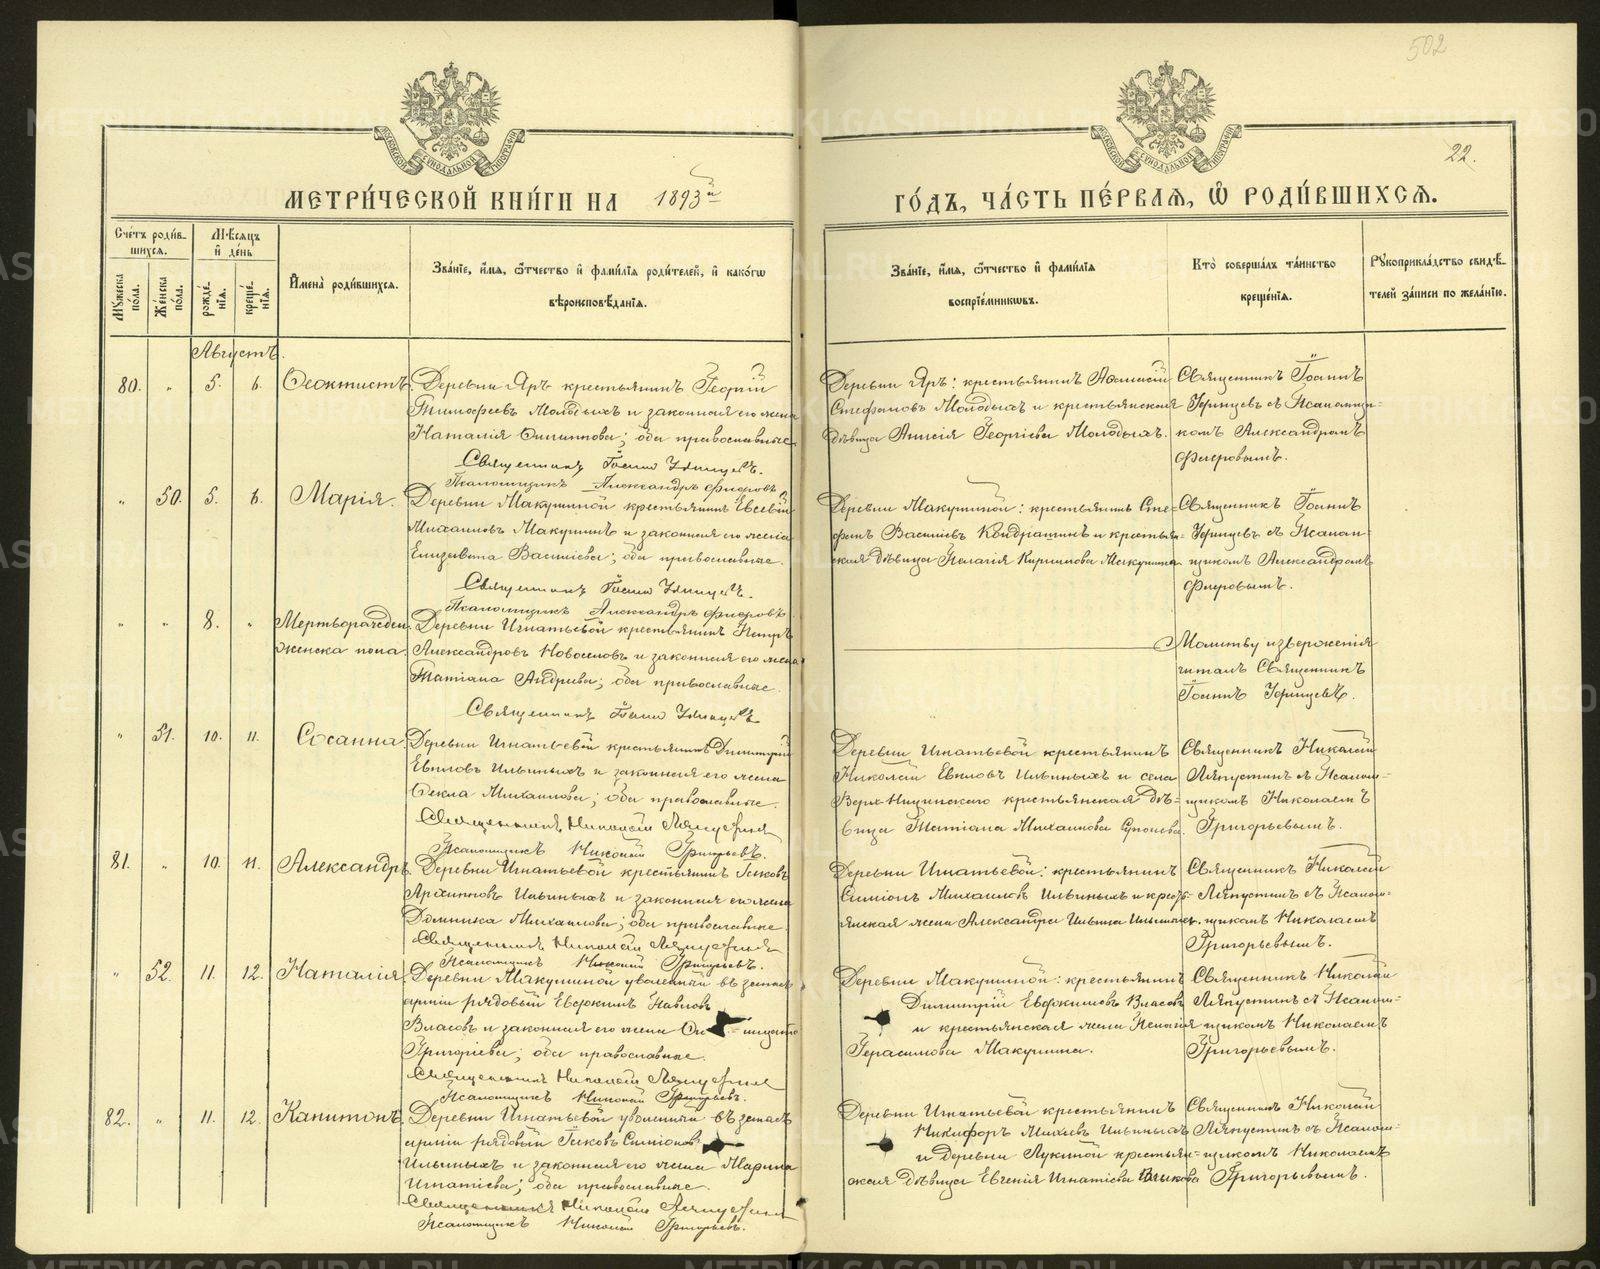 502
22.
МЕТРИ́ЧЕСКОЙ КНИ́ГИ НА 1893й
ГО́ДЪ, ЧА́СТЬ ПЕ́РВАѦ, Ѡ҆ РОДИ́ВШИХСѦ.
Сче́тъ роди́в-
шихсѧ.
Мꙋ́жеска по́ла.
Же́нска по́ла.
Мѣ́сѧцъ
и҆ де́нь
рожде́нїѧ.
креще́нїѧ.
И҆мена̀ роди́вшихсѧ.
Зва́нїе, и҆́мѧ, ѻ҆́тчество и҆ фами́лїѧ роди́телей, и҆ како́гѡ
вѣроисповѣ́данїѧ.
Зва́нїе, и҆́мѧ, ѻ҆́тчество и҆ фами́лїѧ
воспрїе́мникѡвъ.
Кто̀ соверша́лъ та́инство
креще́нїѧ.
Рꙋкоприкла́дство свидѣ́-
телей за́писи по жела́нїю.
Августъ.
80. „ 5. 6. Ѳеоктистъ.
Деревни Яръ крестьянинъ Георгій
Тимофеевъ Молодыхъ и законная его жена
Наталія Филиппова; оба православные.
Священникъ Іоаннъ Уфинцевъ.
Псаломщикъ Александръ Флеровъ
Деревни Яръ: крестьянинъ Аѳанасій
Стефановъ Молодыхъ и крестьянская
дѣвица Анисія Георгіева Молодыхъ.
Священникъ Іоаннъ
Уфинцевъ съ Псаломщи-
комъ Александромъ
Флеровымъ.
„ 50. 5. 6. Марія.
Деревни Макушиной крестьянинъ Евсевій
Михаиловъ Макушинъ и законная его жена
Елизавета Василіева; оба православные.
Священникъ Іоаннъ Уфинцевъ.
Псаломщикъ Александръ Флеровъ
Деревни Макушиной: крестьянинъ Сте-
фанъ Василіевъ Кондратинъ и крестьян-
ская дѣвица Пелагія Кириллова Макушина.
Священникъ Іоаннъ
Уфинцевъ съ Псалом-
щикомъ Александромъ
Флеровымъ.
„ „ 8. „ Мертворожден.
женска пола.
Деревни Игнатьевой крестьянинъ Петръ
Александровъ Новоселовъ и законная его жена
Татіана Андреева; оба православные.
Священникъ Іоаннъ Уфинцевъ
Молитву изверженія
читалъ Священникъ
Іоаннъ Уфинцевъ.
„ 51. 10. 11. Сосанна.
Деревни Игнатьевой крестьянинъ Димитрій
Евиловъ Ильиныхъ и законная его жена
Ѳекла Михаилова; оба православные.
Священникъ Николай Ляпустинъ
Псаломщикъ Николай Григорьевъ.
Деревни Игнатьевой крестьянинъ
Николай Евиловъ Ильиныхъ и села
Верх-Ницинскаго крестьянская дѣ-
вица Татіана Михаилова
Священникъ Николай
Ляпустинъ съ Псалом-
щикомъ Николаемъ
Григорьевымъ.
81. „ 10. 11. Александръ.
Деревни Игнатьевой крестьянинъ Іаковъ
Архипповъ Ильиныхъ и законная его жена
Домника Михаилова; оба православные.
Священникъ Николай Ляпустинъ
Псаломщикъ Николай Григорьевъ.
Деревни Игнатьевой: крестьянинъ
Симеонъ Михаиловъ Ильиныхъ и кресть-
янская жена Александра Ильина Ильиныхъ.
Священникъ Николай
Ляпустинъ съ Псалом-
щикомъ Николаемъ
Григорьевымъ.
„ 52. 11. 12. Наталія.
Деревни Макушиной уволенный въ запасъ
арміи рядовый Евфимій Павловъ
Власовъ и законная его жена
Григоріева; оба православные.
Священникъ Николай Ляпустинъ
Псаломщикъ Николай Григорьевъ.
Деревни Макушиной: крестьянинъ
Димитрій Евфимовъ Власовъ
и крестьянская жена Пелагія
Герасимова Макушина.
Священникъ Николай
Ляпустинъ съ Псалом-
щикомъ Николаемъ
Григорьевымъ.
82. „ 11. 12. Капитонъ.
Деревни Игнатьевой уволенный въ запасъ
арміи рядовый Іаковъ Симіоновъ
Ильиныхъ и законная его жена Марина
Игнатіева; оба православные.
Священникъ Николай Ляпустинъ
Псаломщикъ Николай Григорьевъ.
Деревни Игнатьевой крестьянинъ
Никифоръ Михеевъ Ильиныхъ
и деревни Лукиной крестьян-
ская дѣвица Евгенія Игнатіева
Священникъ Николай
Ляпустинъ съ Псалом-
щикомъ Николаемъ
Григорьевымъ.
METRIKI.GASO-URAL.RU